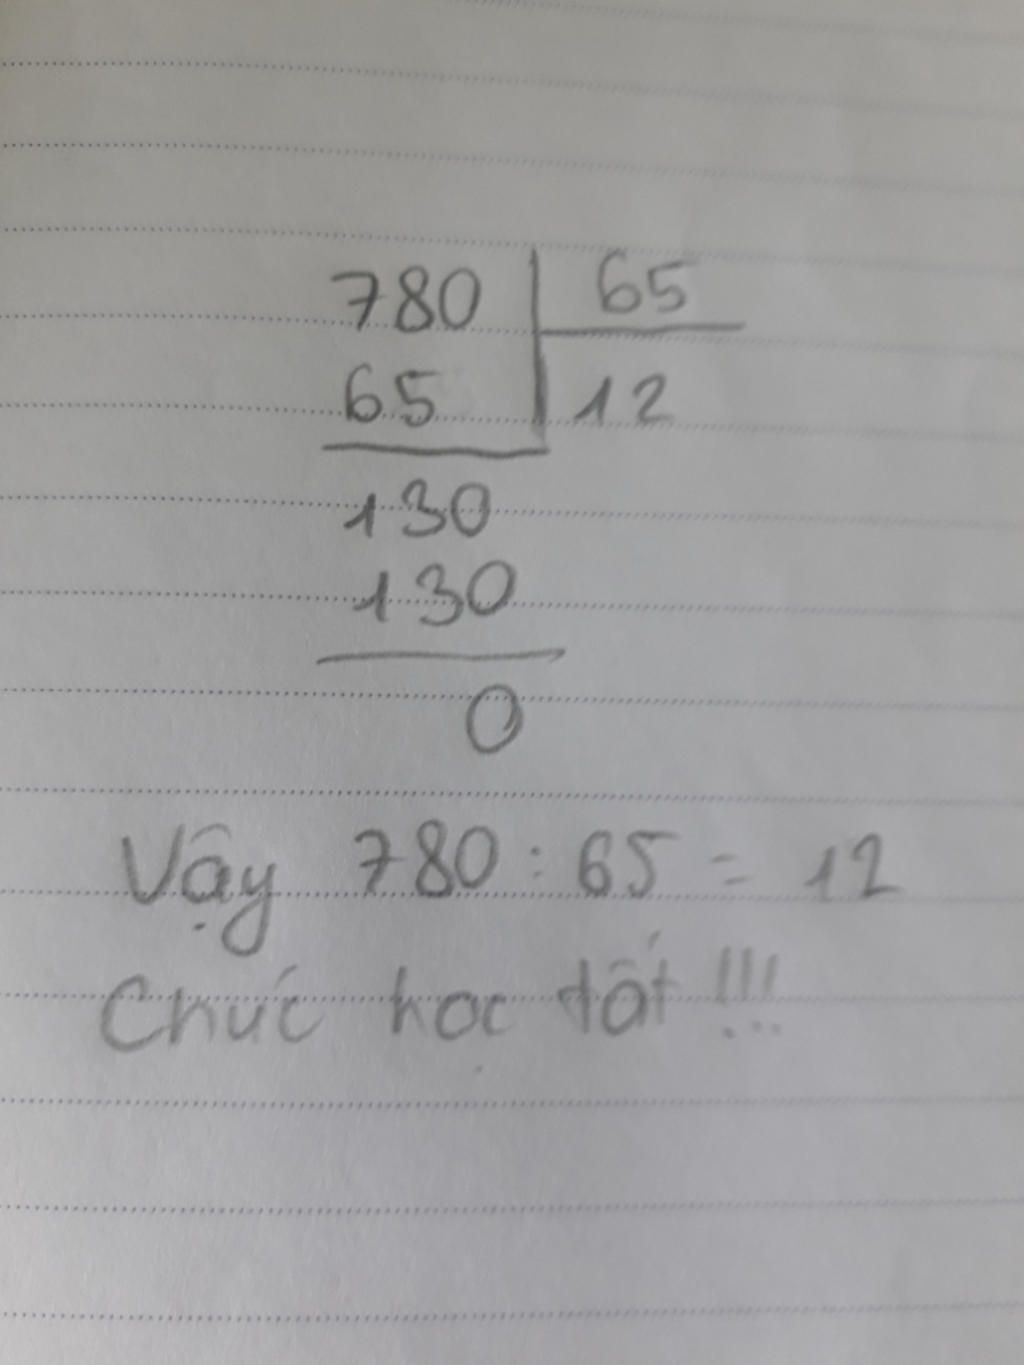 780 65
65 12
130
130
0
Vậy 780 : 65 = 12
Chúc học tốt !!!